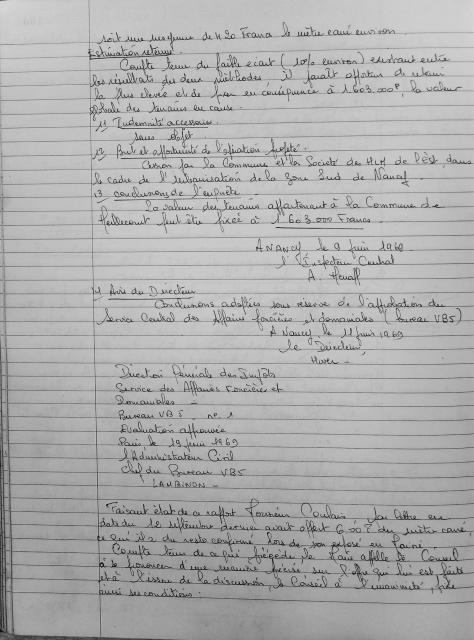 soit une moyenne de 4 20 Francs le mètre carré environ.
Estimation retenue.
Compte tenu du faible écart (10% environ) existant entre
les résultats des deux méthodes, il paraît opportun de retenir
la plus élevée et de fixer en conséquence à 1 603.000F, la valeur
globale des terrains en cause.
11 Indemnité accessoire
sans objet
12 But et opportunité de l'opération projetée.
Cession par la Commune et la Société des HLM de l'Est, dans
le cadre de l'urbanisation de la zone Sud de Nancy
13 conclusions de l'enquête -
La valeur des terrains appartenant à la Commune de
Heillecourt peut être fixée à 1 603.000 Francs.
A NANCY, le 9 juin 1969
l'Inspecteur Central
A.
Avis du Directeur
Conclusions adoptées sous réserve de l'approbation du
Service Central des Affaires foncières et domaniales (bureau VB5)
A Nancy, le 11 juin 1969
le Directeur,
Direction Générale des Impôts
Service des Affaires Foncières et
Domaniales -
Bureau VB5 - no 1
Evaluation approuvée
Paris, le 19 juin 1969
l'Administrateur Civil
Chef du Bureau VB5
LAMBINON -
Faisant état de ce rapport Monsieur par lettre en
date du 12 septembre dernier avait offert 6.00F du mètre carré,
ce qu'il a du reste confirmé lors de son exposé en
Compte tenu de ce qui précède, le Maire appelle le Conseil
à se prononcer d'une manière précise sur l'offre qui lui est faite
et à l'issue de la discussion, le Conseil à l'unanimité, fixe
ainsi ses conditions :